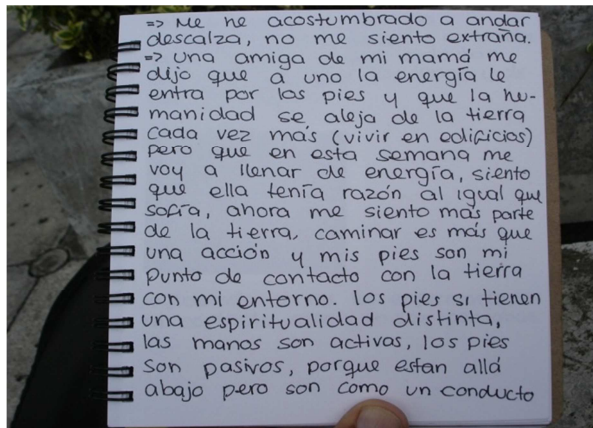 => Me he acostumbrado a andar
descalza, no me siento extraña.
=> una amiga de mi mamá me
dijo que a uno la energía le
entra por los pies y que la hu-
manidad se aleja de la tierra
cada vez más (vivir en edificios)
pero que en esta semana me
voy a llenar de energía, siento
que ella tenía razón al igual que
sofía, ahora me siento más parte
de la tierra, caminar es más que
una acción y mis pies son mi
punto de contacto con la tierra
con mi entorno. los pies si tienen
una espiritualidad distinta,
las manos son activas, los pies
son pasivos, porque estan allá
abajo pero son como un conducto